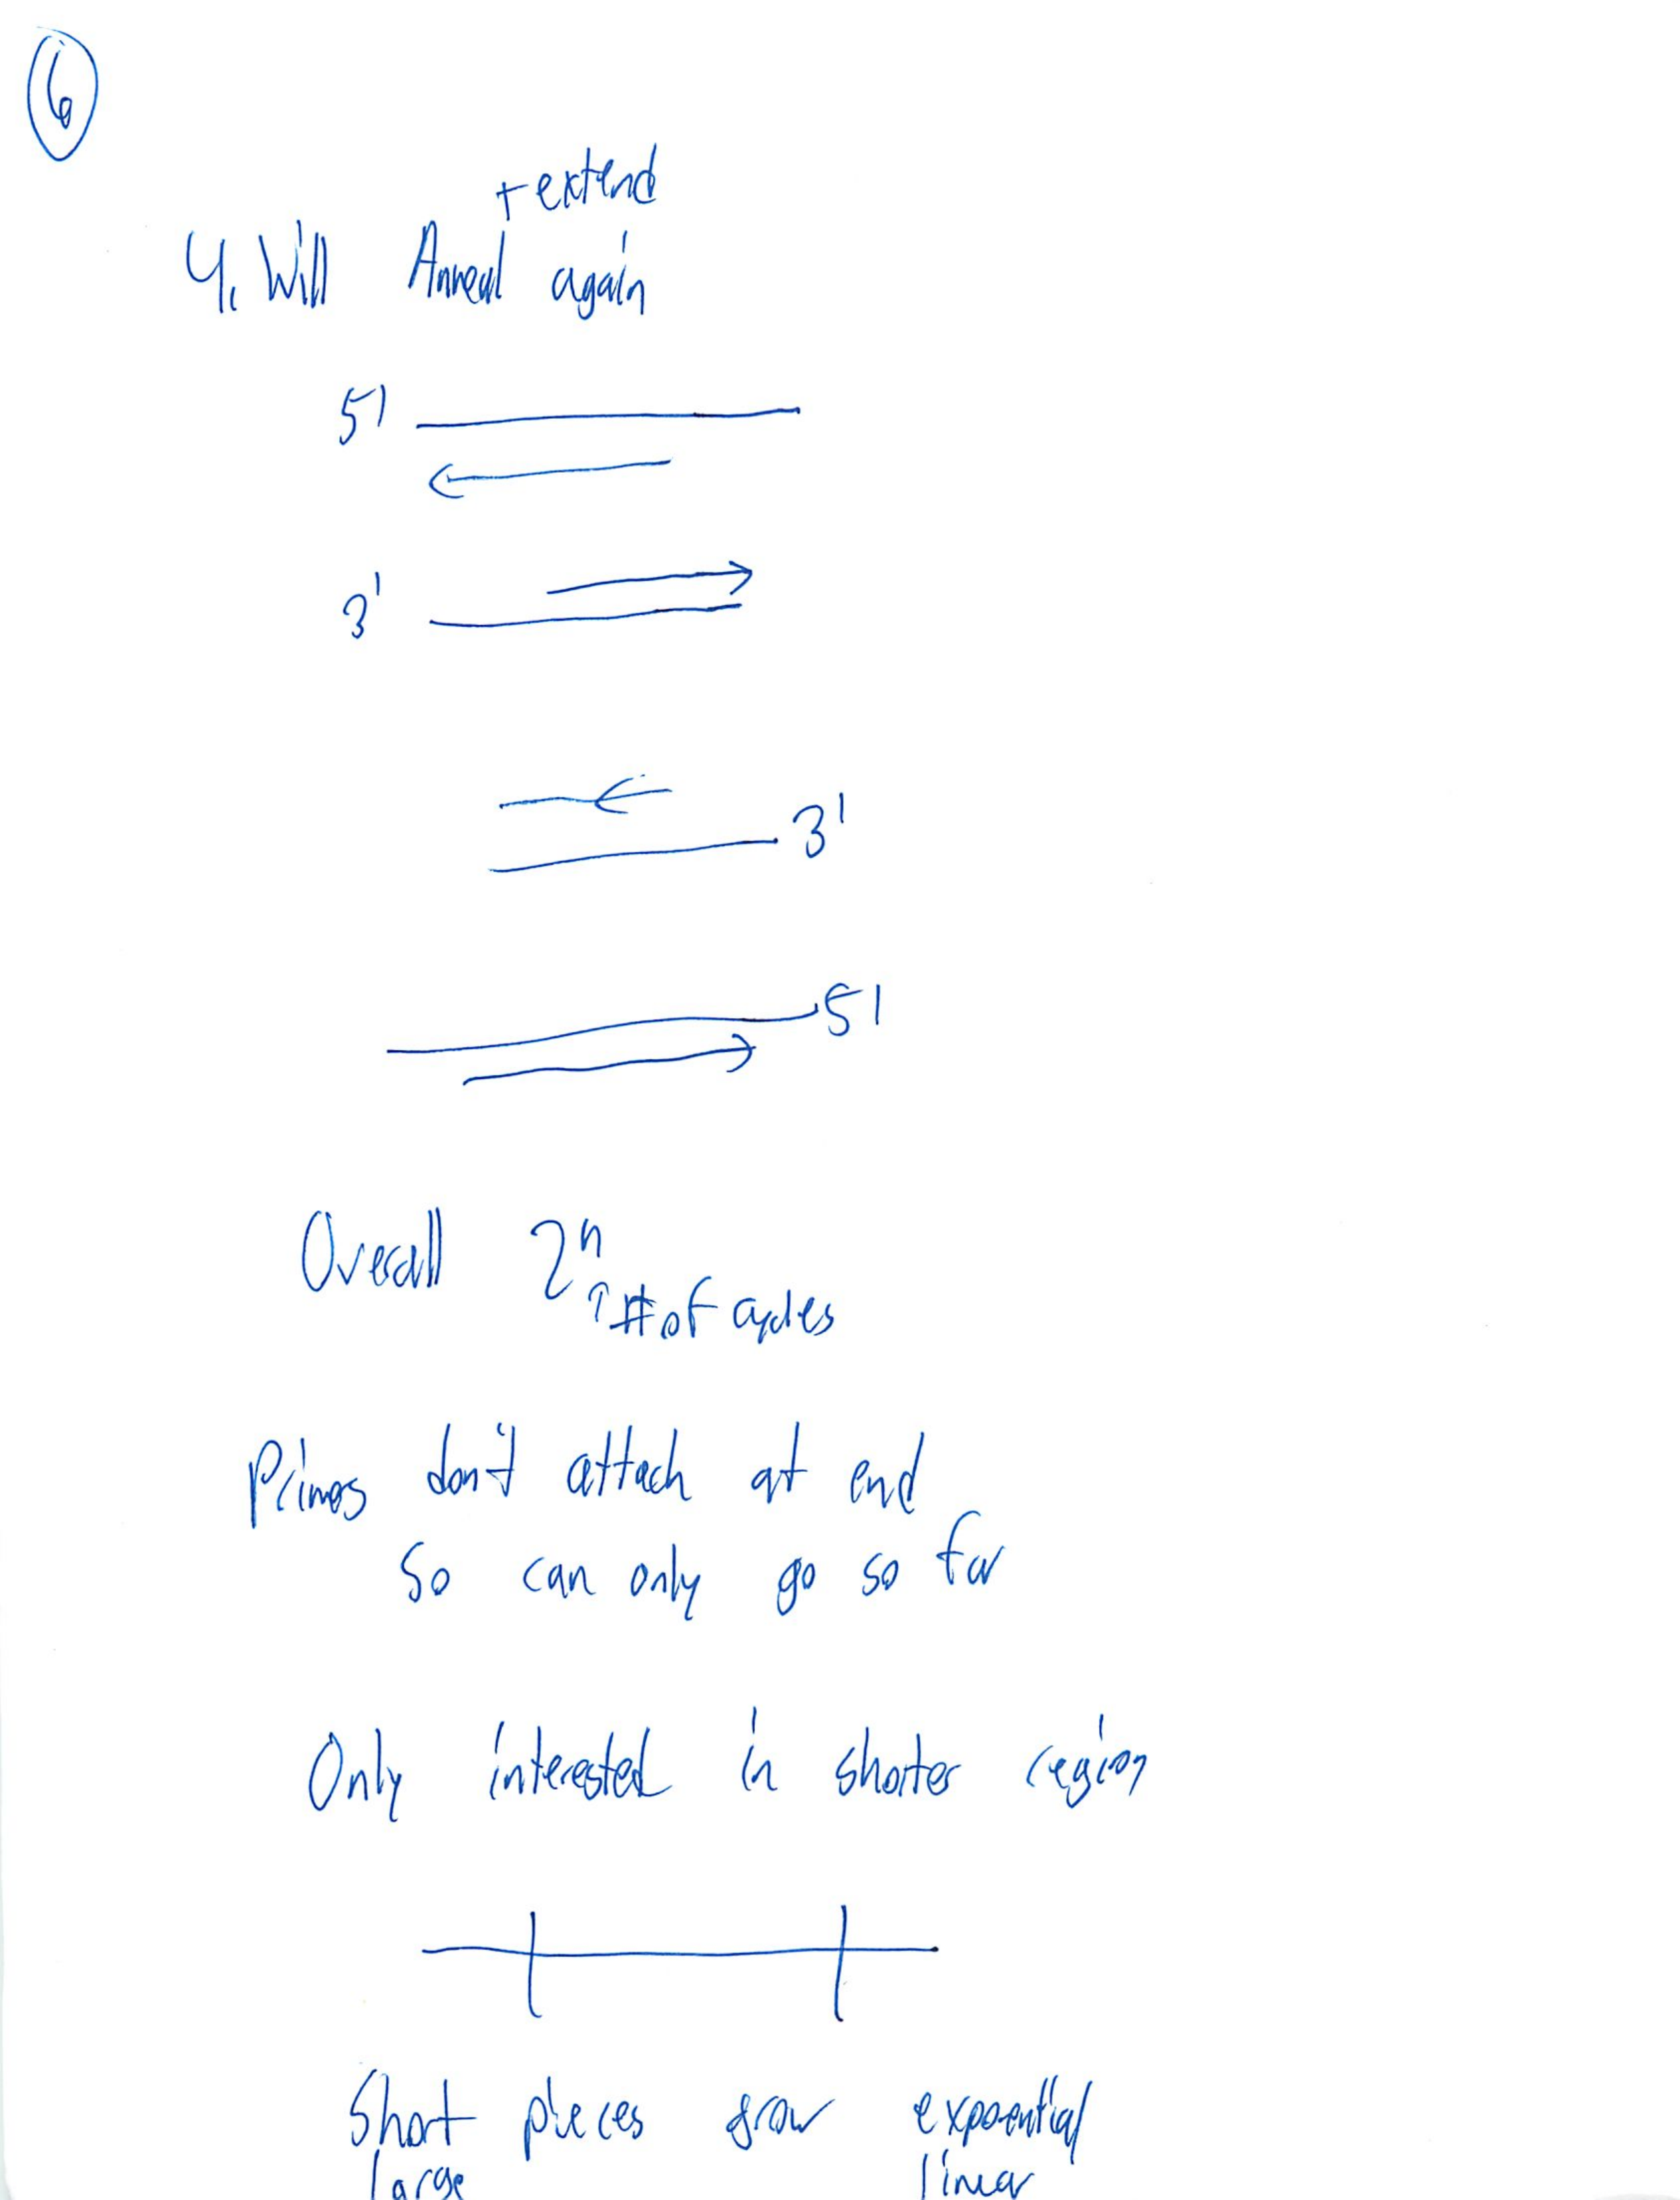 6
+ extend
4. Will Anneal again
5'
3'
3'
5'
Overall 2^n
↑ # of cycles
Primers don't attach at end
so can only go so far
Only interested in shorter region
Short pieces grow exponential
large linear